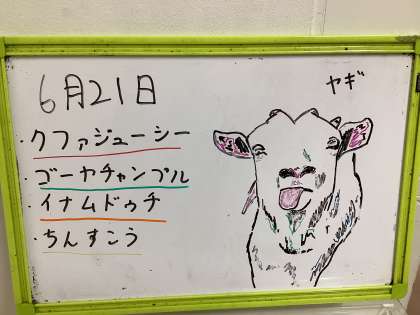 6月21日
・クファジューシー
・ゴーヤチャンプル
・イナムドゥチ
・ちんすこう
ヤギ